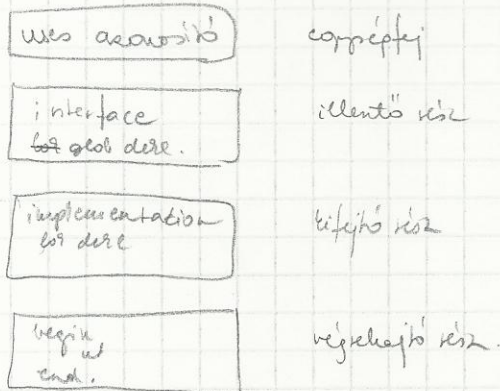 uses azonosító
egységfej
interface
glob dekl.
illesztő rész
implementation
lok dekl
kifejtő rész
begin
ut
end.
végrehajtó rész.